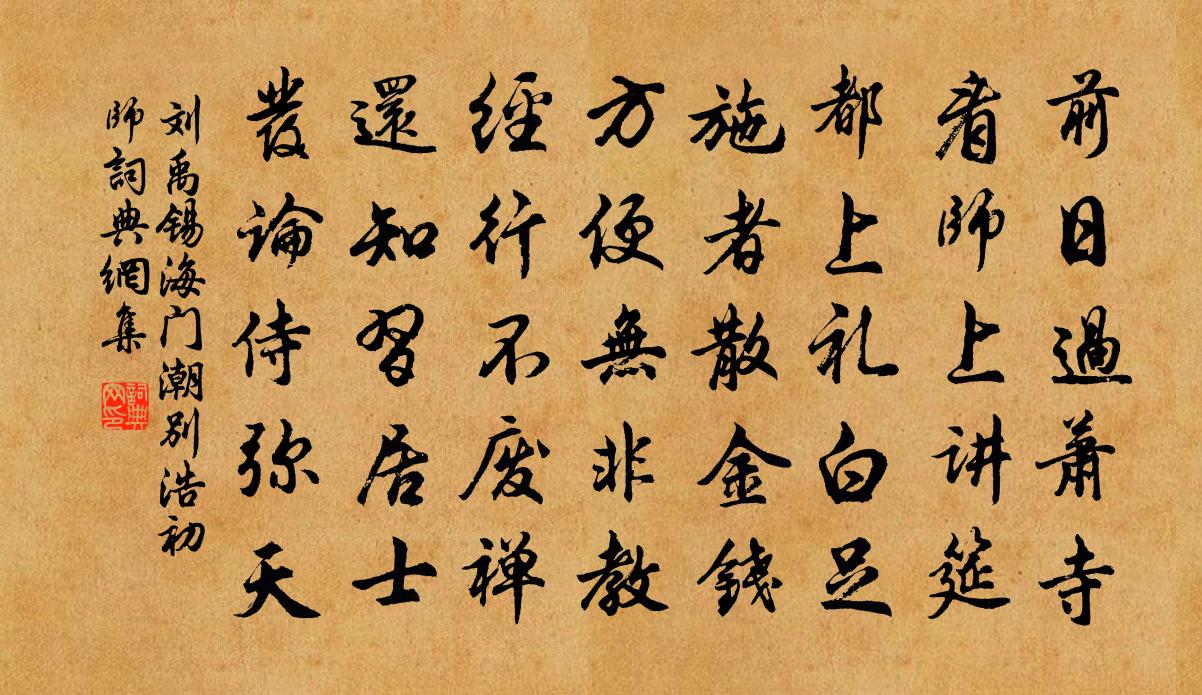 前日過蕭寺
看師上讲筵
都上礼白足
施者散金錢
方便無非教
經行不废禅
還知習居士
發論侍弥天
刘禹锡海门潮别浩初
師詞典網集
詞典
网印